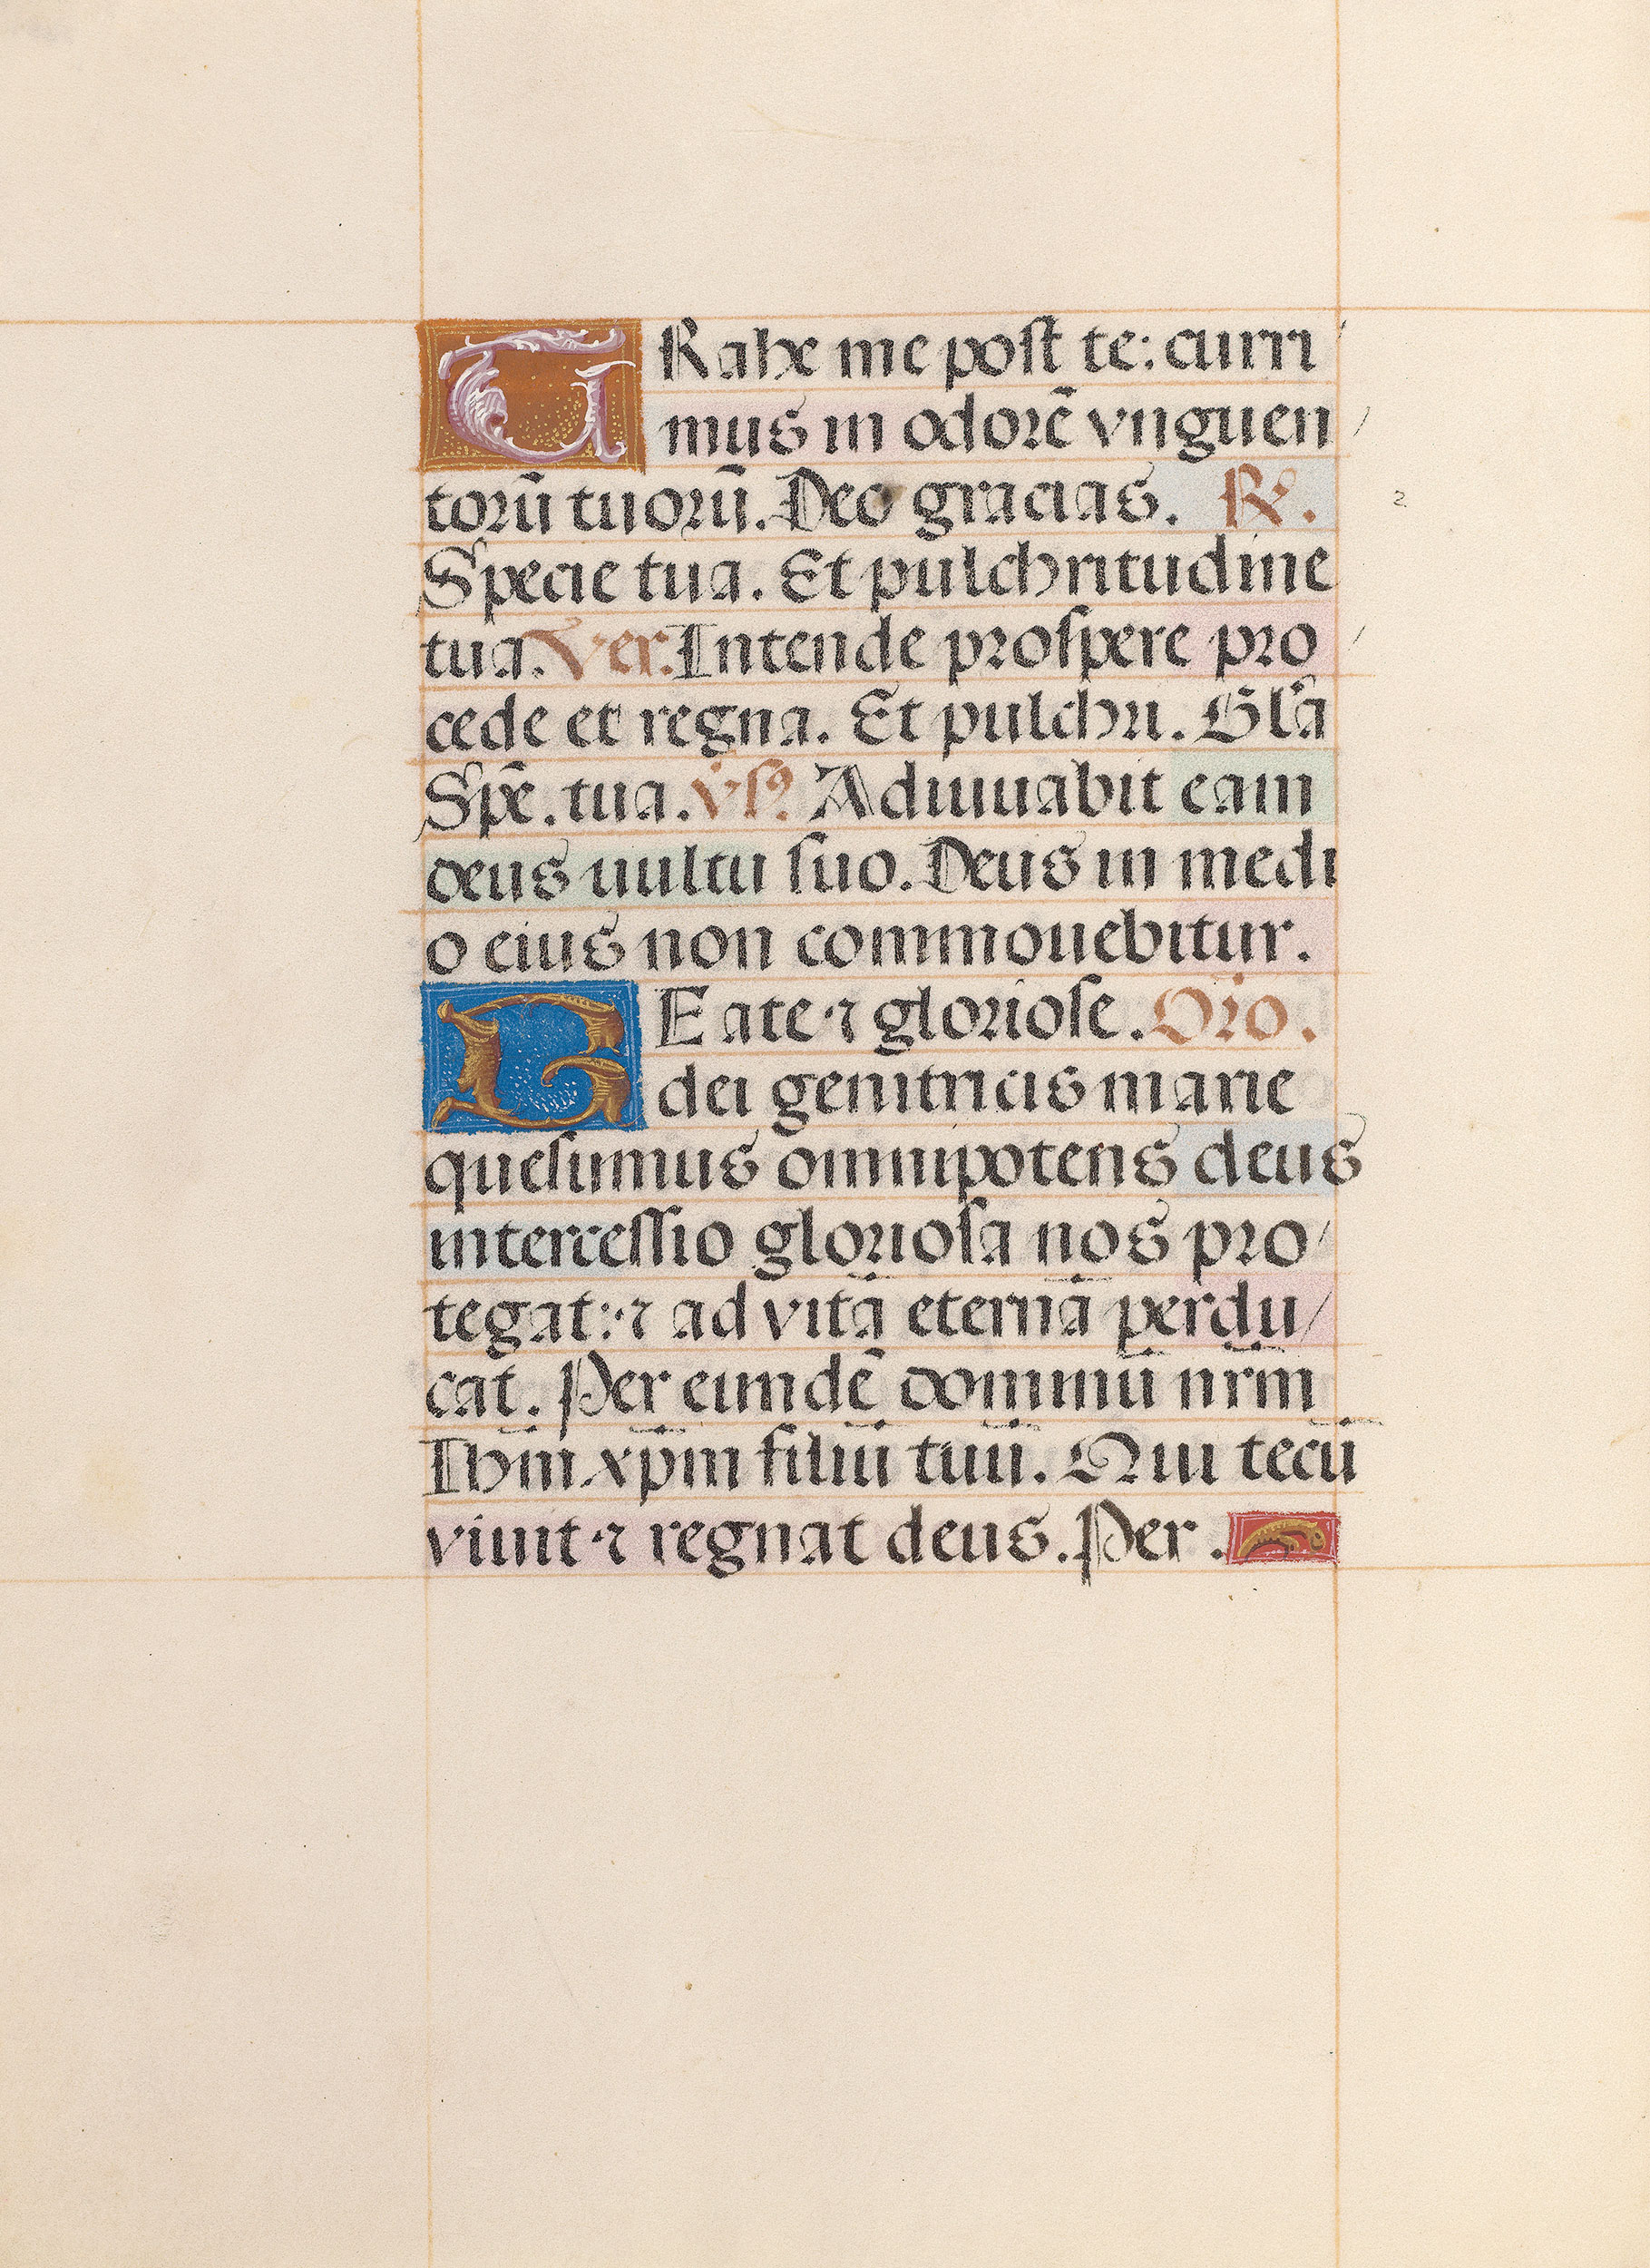 TRahe me post te: curri
mus in odorē vnguen
torū tuorū. Deo gracias. ℟.
Specie tua. Et pulchritudine
tua. Ver. Intende prospere pro
cede et regna. Et pulchri. Gl̃a
Spē. tua. Vsꝰ. Adiuuabit eam
deus uultu suo. Deus in medi
o eius non commouebitur.
BEate ⁊ gloriose. Orō.
dei genitricis marie
quesumus omnipotens deus
intercessio gloriosa nos pro
tegat: ⁊ ad vitā eternā perdu
cat. Per eundē dominū nr̄m
Ihm̄ xp̄m filiū tuū. Qui tecū
viuit ⁊ regnat deus. Per.
2